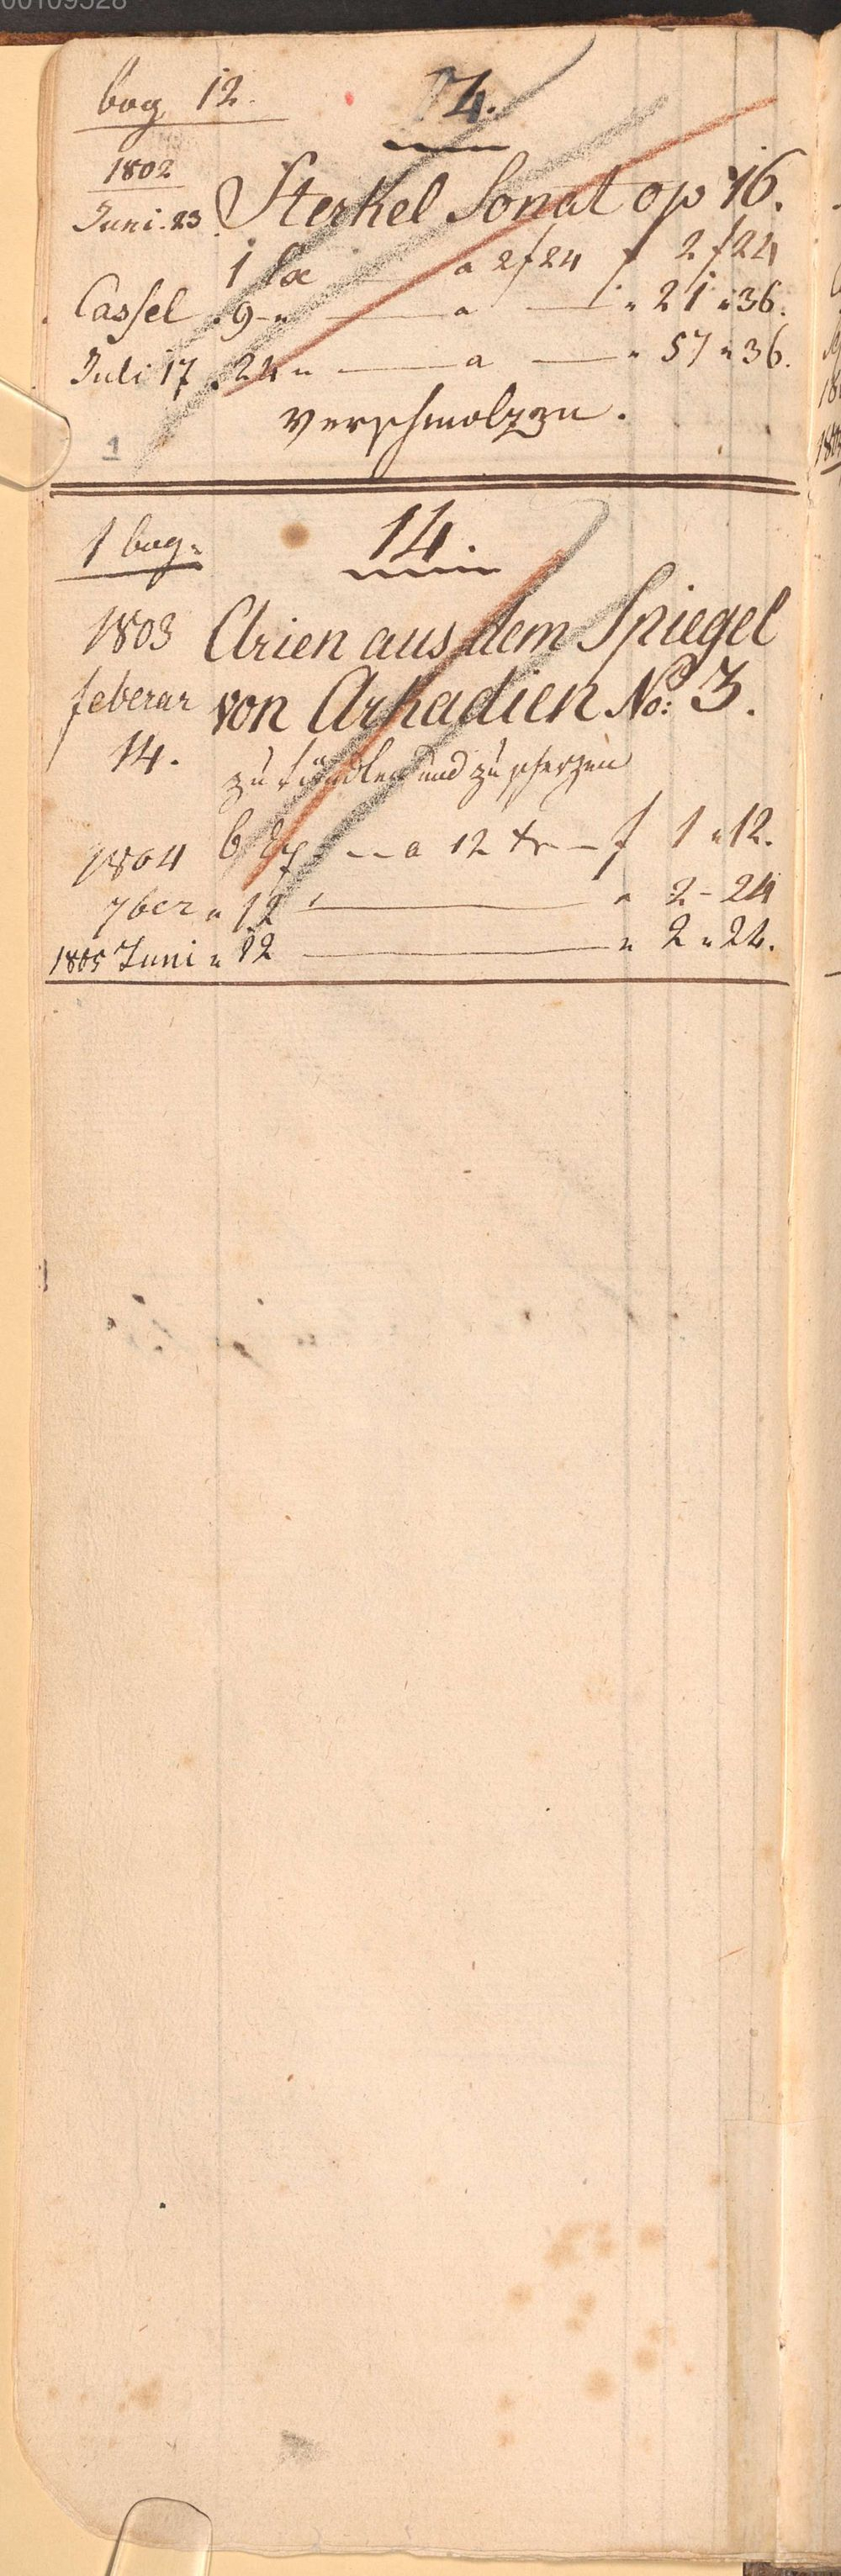 00109528
bog 12.
14.
1802
Juni. 23. Sterkel Sonat op 16.
1 Ex a 2f24 f 2f24
Cassel. 9 " a — " 21 " 36.
Juli 17. 24 " — a — " 57 " 36.
verschmolzen.
1
1 bog.
14.
1803 Arien aus dem Spiegel
feberar von Arkadien No: 3.
14.
zu tändlen und zu scherzen
1804 6 Ex — a 12 xr — f 1 " 12.
7ber " 12 — " 2 - 24
1805 Juni " 12 — " 2 " 24.